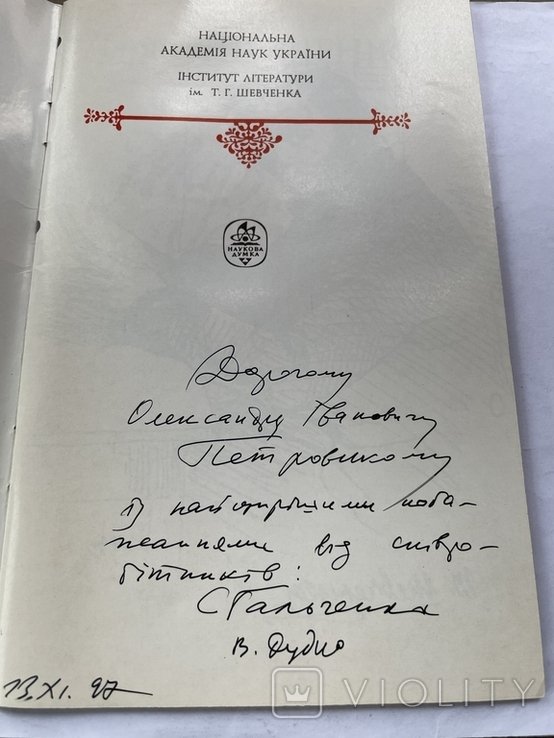 НАЦІОНАЛЬНА
АКАДЕМІЯ НАУК УКРАЇНИ
ІНСТИТУТ ЛІТЕРАТУРИ
ім. Т. Г. ШЕВЧЕНКА
НАУКОВА
ДУМКА
Дорогому
Олександру Івановичу
Петровському
із найщирішими поба-
жаннями від співро-
бітників:
С. Гальченка
В. Дудко
13.XI. 97
VIOLITY